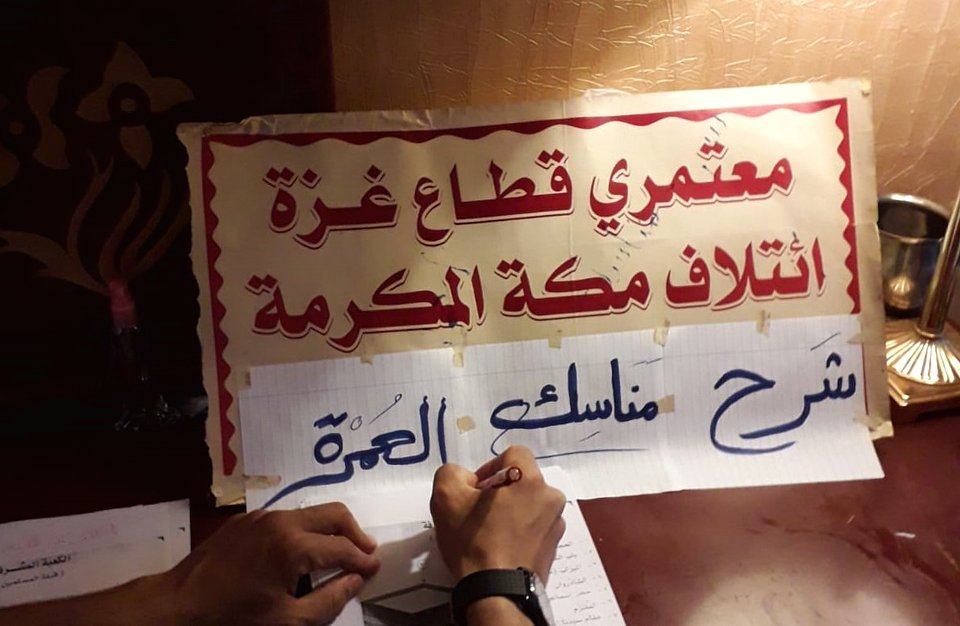 معتمري قطاع غزة
ائتلاف مكة المكرمة
شَرح مَناسِك العُمرة
الكعبة المشرفة